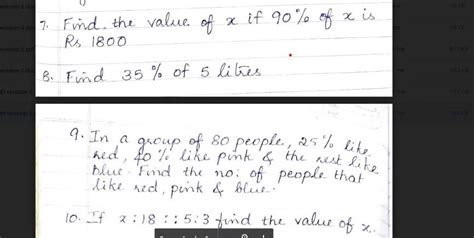 7. Find the value of x if 90% of x is
Rs 1800
8. Find 35% of 5 litres
9. In a group of 80 people, 25% like
red, 40% like pink & the rest like
blue. Find the no: of people that
like red, pink & blue.
10. If x : 18 : : 5 : 3 find the value of x.